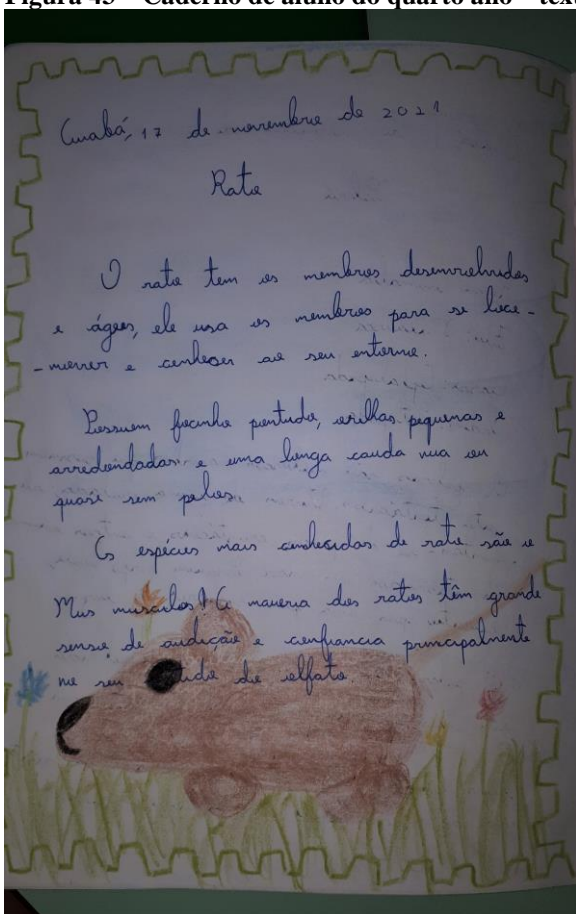 Figura 45 – Caderno de aluno do quarto ano – text
Cuiabá, 17 de novembro de 2021
Rato
O rato tem os membros desenvolvidos
e ágees, ele usa os membros para se loco-
-mover e conhecer ao seu entorno.
Possuem focinho pontudo, orelhas pequenas e
arredondadas e uma longa cauda nua ou
quase sem pelos.
As espécies mais conhecidas de rato são o
Mus A maioria dos ratos têm grande
senso de audição e principalmente
no seu do olfato.